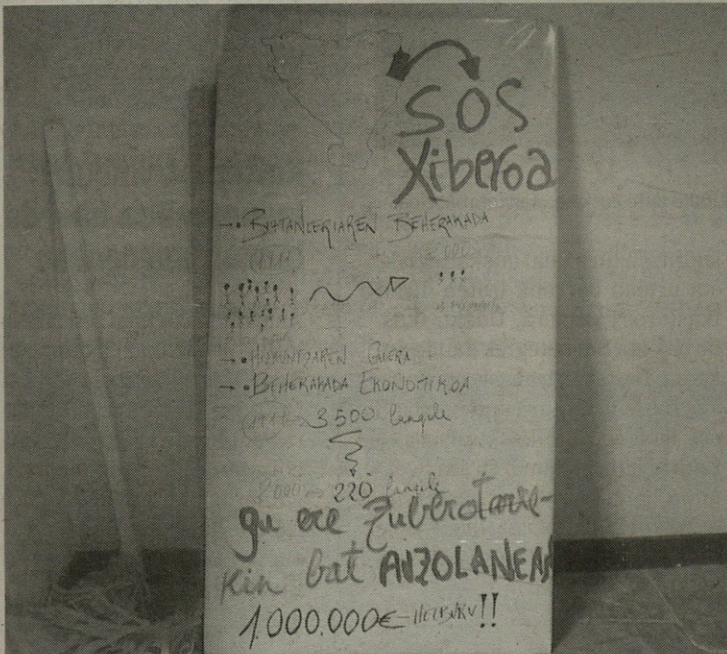 SOS
Xiberoa
→ • BIZTANLERIAREN BEHERAKADA
→ • GALERA
→ • BEHERAKADA EKONOMIKOA
3500 langile
2000 → 220 langile
gu ere Zuberotarre-
kin bat AUZOLANEAN
1.000.000€ HELBURU!!